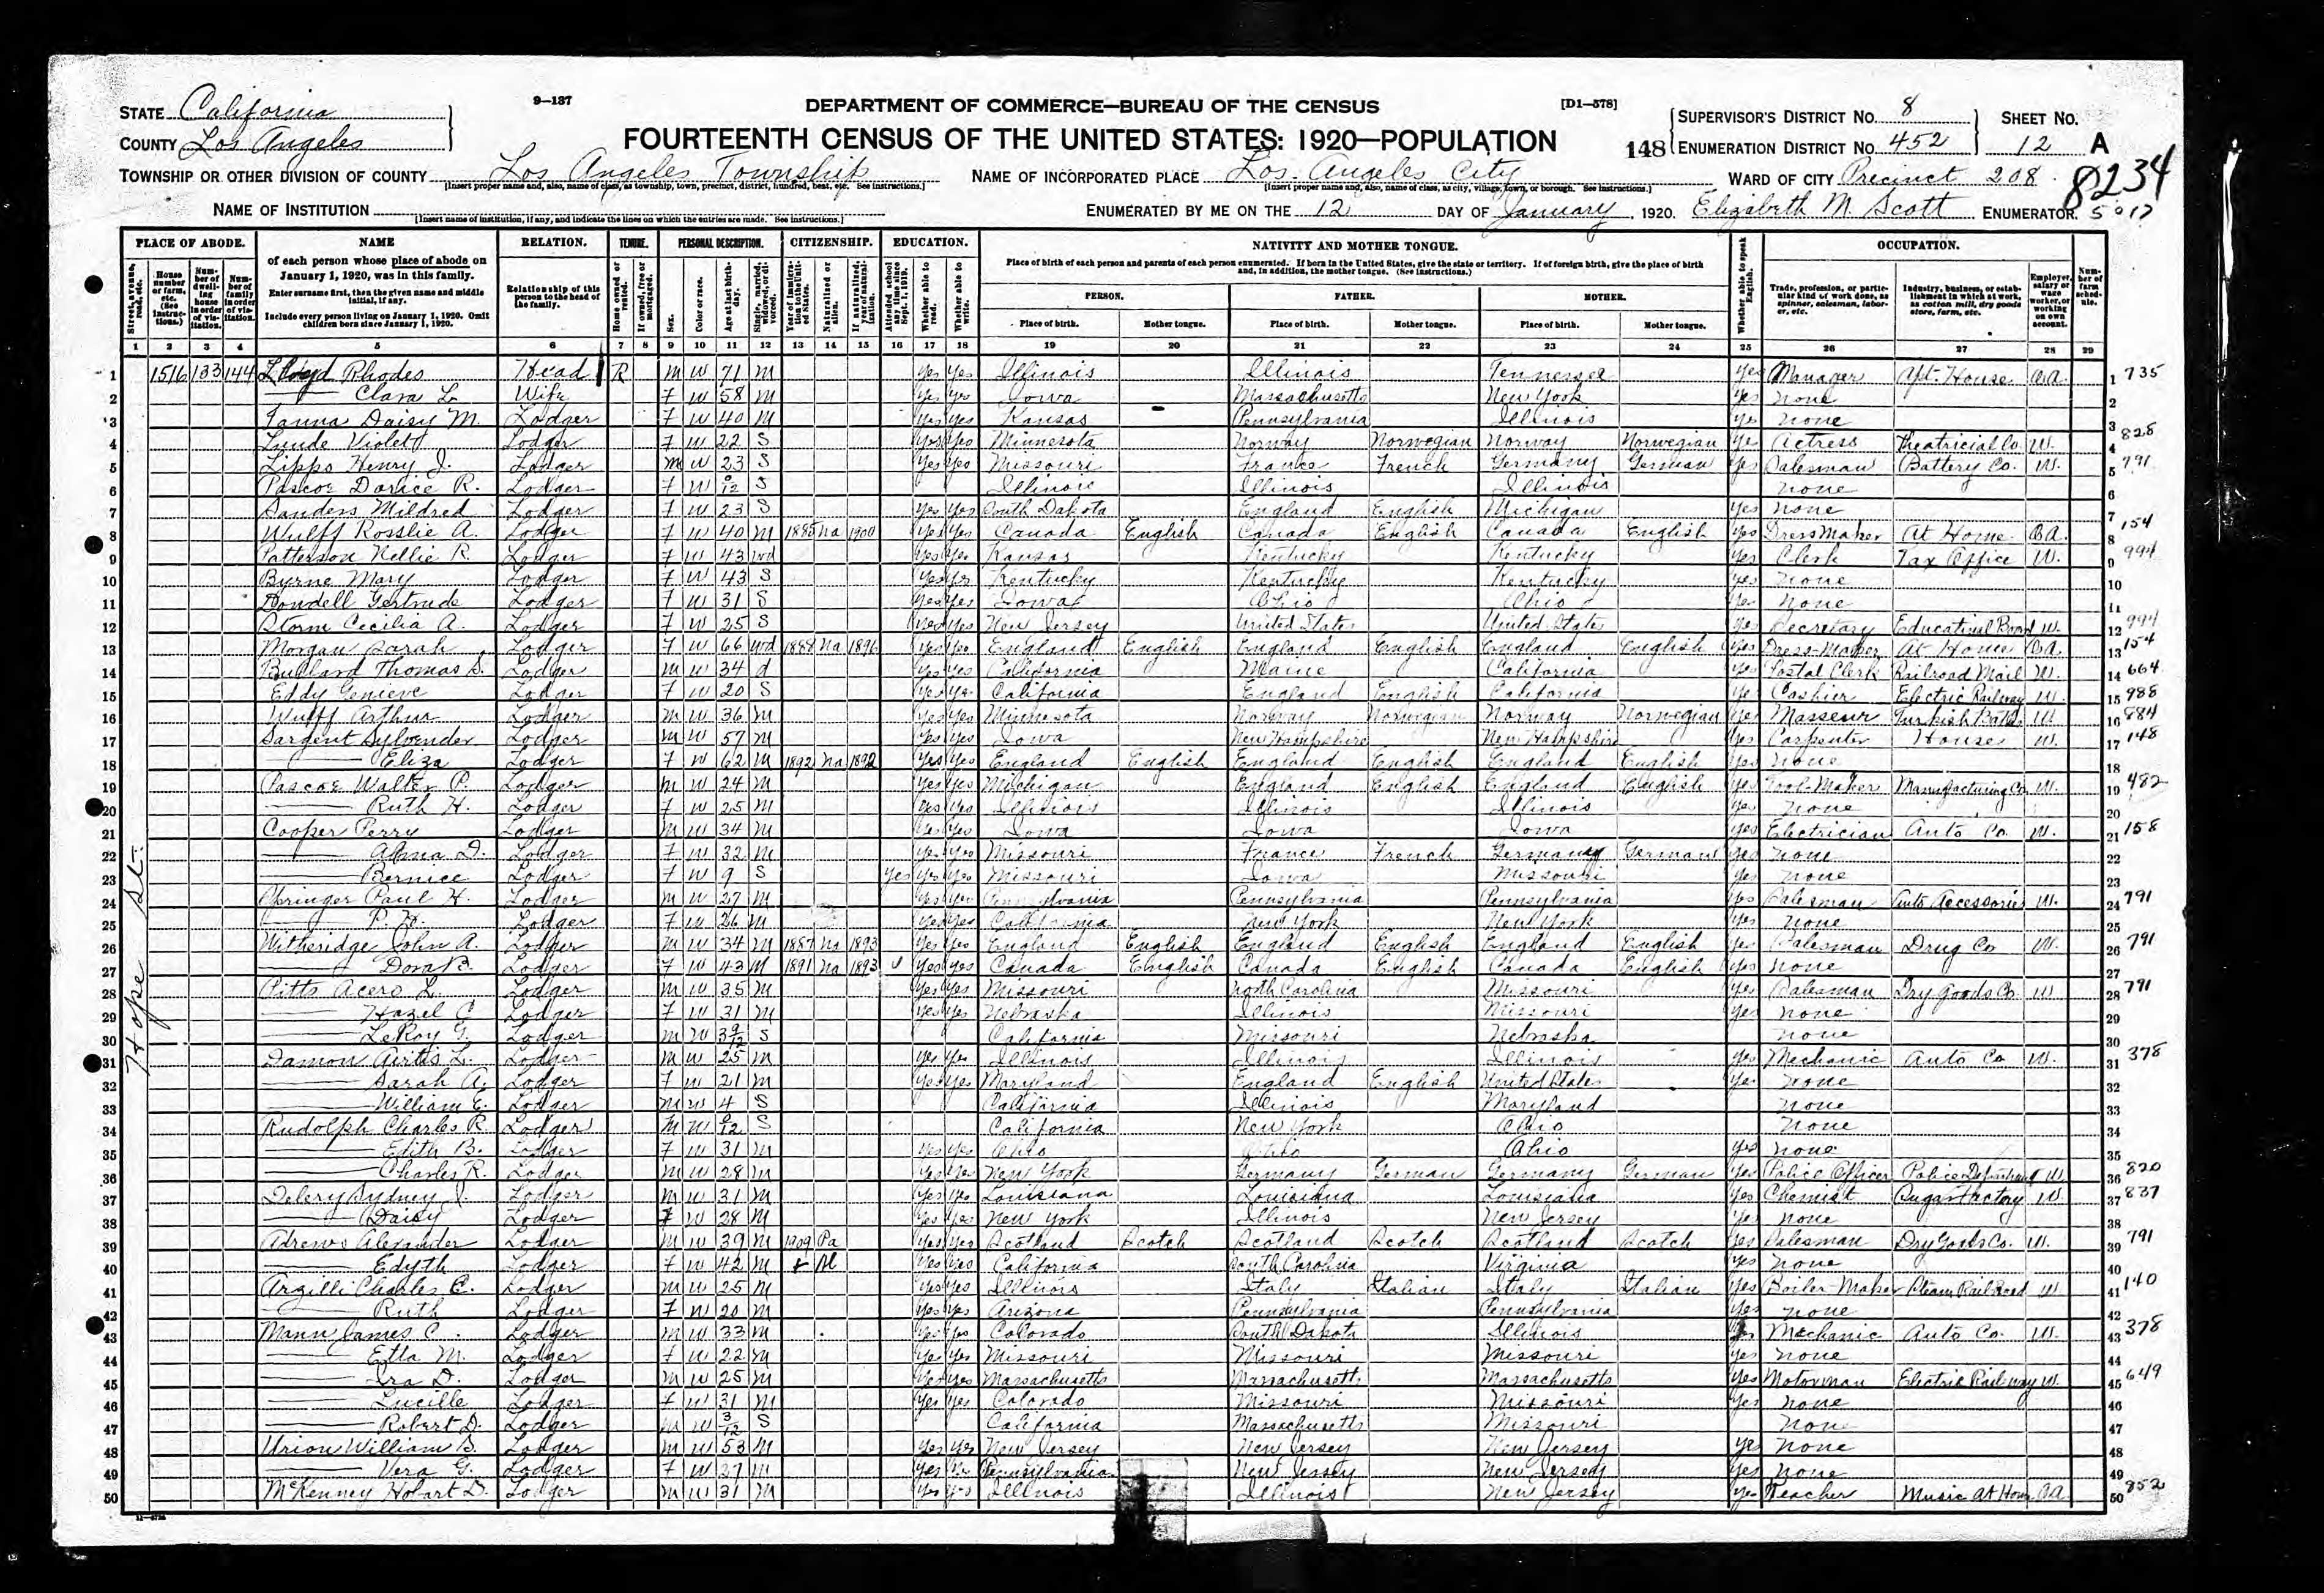 STATE California
COUNTY Los Angeles
9—137
DEPARTMENT OF COMMERCE—BUREAU OF THE CENSUS
[D1—578]
FOURTEENTH CENSUS OF THE UNITED STATES: 1920—POPULATION
148
SUPERVISOR'S DISTRICT No. 8
ENUMERATION DISTRICT No. 452
SHEET No. 12 A
8234
TOWNSHIP OR OTHER DIVISION OF COUNTY Los Angeles Township
[Insert proper name and, also, name of class, as township, town, precinct, district, hundred, beat, etc. See instructions.]
NAME OF INCORPORATED PLACE Los Angeles City
[Insert proper name and, also, name of class, as city, village, town, or borough. See instructions.]
WARD OF CITY Precinct 208
NAME OF INSTITUTION
[Insert name of institution, if any, and indicate the lines on which the entries are made. See instructions.]
ENUMERATED BY ME ON THE 12 DAY OF January, 1920. Elizabeth M. Scott ENUMERATOR. 5017
PLACE OF ABODE. NAME RELATION. TENURE. PERSONAL DESCRIPTION. CITIZENSHIP. EDUCATION. NATIVITY AND MOTHER TONGUE. OCCUPATION.
Hope St.
1 1516 133 144 Lloyd Rhodes Head R M W 71 M Yes Yes Illinois Illinois Tennessee Yes Manager Apt. House OA 1 735
2 Clara L Wife F W 58 M Yes Yes Iowa Massachusetts New York Yes None 2
3 Daisy M. Lodger F W 40 M Yes Yes Kansas Pennsylvania Illinois Yes None 3
4 Lunde Violet Lodger F W 22 S Yes Yes Minnesota Norway Norwegian Norway Norwegian Yes Actress Theatricial Co. W. 4 828
5 Lipps Henry J. Lodger M W 23 S Yes Yes Missouri France French Germany German Yes Salesman Battery Co. W. 5 791
6 Pascoe Dorice R. Lodger F W S Illinois Illinois Illinois None 6
7 Sanders Mildred Lodger F W 23 S Yes Yes South Dakota England English Michigan Yes None 7
8 Wulff Rosslie A. Lodger F W 40 M 1885 Na 1900 Yes Yes Canada English Canada English Canada English Yes DressMaker At Home OA 8 154
9 Patterson Nellie R Lodger F W 43 Wd Yes Yes Kansas Kentucky Kentucky Yes Clerk Tax Office W. 9 994
10 Byrne Mary Lodger F W 43 S Yes Yes Kentucky Kentucky Kentucky Yes None 10
11 Gertrude Lodger F W 31 S Yes Yes Iowa Ohio Ohio Yes None 11
12 Storm Cecilia A. Lodger F W 25 S Yes Yes New Jersey United States United States Yes Secretary Educatinal Board W. 12 994
13 Morgan Sarah Lodger F W 66 Wd 1888 Na 1896 Yes Yes England English England English England English Yes Dress-Maker At Home OA 13 154
14 Bullard Thomas S. Lodger M W 34 d Yes Yes California Maine California Yes Postal Clerk Railroad Mail W. 14 664
15 Eddy Genieve Lodger F W 20 S Yes Yes California England English California Yes Cashier Electric Railway W. 15 988
16 Wulff Arthur Lodger M W 36 M Yes Yes Minnesota Norway Norwegian Norway Norwegian Yes Masseur Turkish Baths W 16 884
17 Sargent Sylvender Lodger M W 57 M Yes Yes Iowa New Hampshire New Hampshire Yes Carpenter House W. 17 148
18 Eliza Lodger F W 62 M 1892 Na 1892 Yes Yes England English England English England English Yes None 18
19 Pascoe Walter P. Lodger M W 24 M Yes Yes Michigan England English England English Yes Tool-Maker Manufacturing Co W. 19 482
20 Ruth H. Lodger F W 25 M Yes Yes Illinois Illinois Illinois Yes None 20
21 Cooper Perry Lodger M W 34 M Yes Yes Iowa Iowa Iowa Yes Electrician Auto Co. W. 21 158
22 Alma D. Lodger F W 32 M Yes Yes Missouri France French Germany German Yes None 22
23 Bernice Lodger F W 9 S Yes Yes Yes Missouri Iowa Missouri Yes None 23
24 Springer Paul H. Lodger M W 27 M Yes Yes Pennsylvania Pennsylvania Pennsylvania Yes Salesman Auto Accessories W. 24 791
25 P. H. Lodger F W 26 M Yes Yes California New York New York Yes None 25
26 Witheridge John A. Lodger M W 34 M 1887 Na 1893 Yes Yes England English England English England English Yes Salesman Drug Co W. 26 791
27 Dora B. Lodger F W 43 M 1891 Na 1893 Yes Yes Canada English Canada English Canada English Yes None 27
28 Pitts Acero L. Lodger M W 35 M Yes Yes Missouri North Carolina Missouri Yes Salesman Dry Goods Co. W 28 791
29 Hazel C Lodger F W 31 M Yes Yes Nebraska Illinois Missouri Yes None 29
30 LeRoy G. Lodger M W 3 9/12 S California Missouri Nebraska None 30
31 Damon Curtis L. Lodger M W 25 M Yes Yes Illinois Illinois Illinois Yes Mechanic Auto Co W. 31 378
32 Sarah A. Lodger F W 21 M Yes Yes Maryland England English United States Yes None 32
33 William E. Lodger M W 4 S California Illinois Maryland None 33
34 Rudolph Charles R Lodger M W S California New York Ohio None 34
35 Edith B. Lodger F W 31 M Yes Yes Ohio Ohio Ohio Yes None 35
36 Charles R. Lodger M W 28 M Yes Yes New York Germany German Germany German Yes Police Officer Police Department W 36 820
37 Delery Sydney J. Lodger M W 31 M Yes Yes Louisiana Louisiana Louisiana Yes Chemist Sugar Factory W 37 837
38 Daisy Lodger F W 28 M Yes Yes New York Illinois New Jersey Yes None 38
39 Adrews Alexander Lodger M W 39 M 1909 Pa Yes Yes Scotland Scotch Scotland Scotch Scotland Scotch Yes Salesman Dry Goods Co. W. 39 791
40 Edyth Lodger F W 42 M Yes Yes California South Carolina Virginia Yes None 40
41 Argilli Charles C. Lodger M W 25 M Yes Yes Illinois Italy Italian Italy Italian Yes Boiler-Maker Steam Rail Road W 41 140
42 Ruth Lodger F W 20 M Yes Yes Arizona Pennsylvania Pennsylvania Yes None 42
43 Mann James C. Lodger M W 33 M Yes Yes Colorado South Dakota Illinois Yes Mechanic Auto Co. W. 43 378
44 Etta M. Lodger F W 22 M Yes Yes Missouri Missouri Missouri Yes None 44
45 Ira D. Lodger M W 25 M Yes Yes Massachusetts Massachusetts Massachusetts Yes Motorman Electric Railway W. 45 649
46 Lucille Lodger F W 31 M Yes Yes Colorado Missouri Missouri Yes None 46
47 Robert D. Lodger M W 3/12 S California Massachusetts Missouri None 47
48 Urion William S. Lodger M W 53 M Yes Yes New Jersey New Jersey New Jersey Yes None 48
49 Vera G. Lodger F W 37 M Yes Pennsylvania New Jersey New Jersey Yes None 49
50 McKenney Hobart D. Lodger M W 31 M Yes Yes Illinois Illinois New Jersey Yes Teacher Music At Home OA 50 852